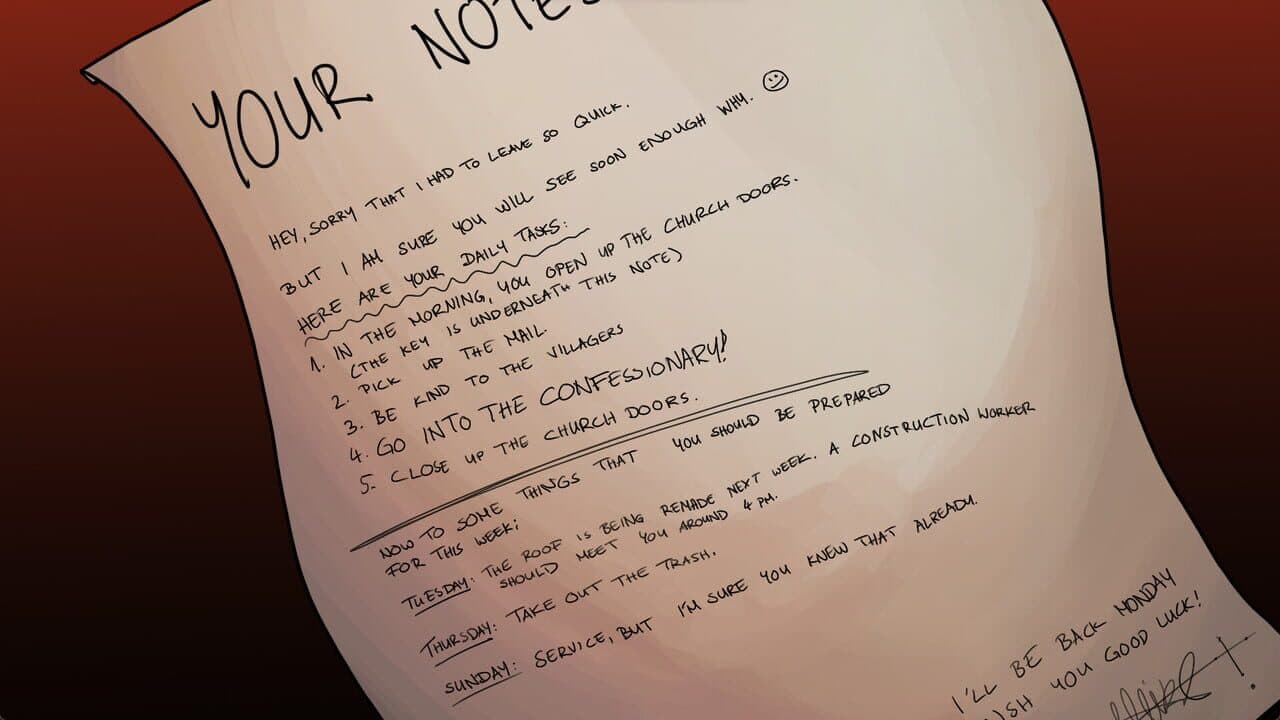 YOUR NOTES
HEY, SORRY THAT I HAD TO LEAVE SO QUICK.
BUT I AM SURE YOU WILL SEE SOON ENOUGH WHY. ☺
HERE ARE YOUR DAILY TASKS:
1. IN THE MORNING, YOU OPEN UP THE CHURCH DOORS.
(THE KEY IS UNDERNEATH THIS NOTE)
2. PICK UP THE MAIL.
3. BE KIND TO THE VILLAGERS
4. GO INTO THE CONFESSIONARY!
5. CLOSE UP THE CHURCH DOORS.
NOW TO SOME THINGS THAT YOU SHOULD BE PREPARED
FOR THIS WEEK:
TUESDAY: THE ROOF IS BEING REMADE NEXT WEEK. A CONSTRUCTION WORKER
SHOULD MEET YOU AROUND 4 PM.
THURSDAY: TAKE OUT THE TRASH.
SUNDAY: SERVICE, BUT I'M SURE YOU KNEW THAT ALREADY.
I'LL BE BACK MONDAY
YOU GOOD LUCK!